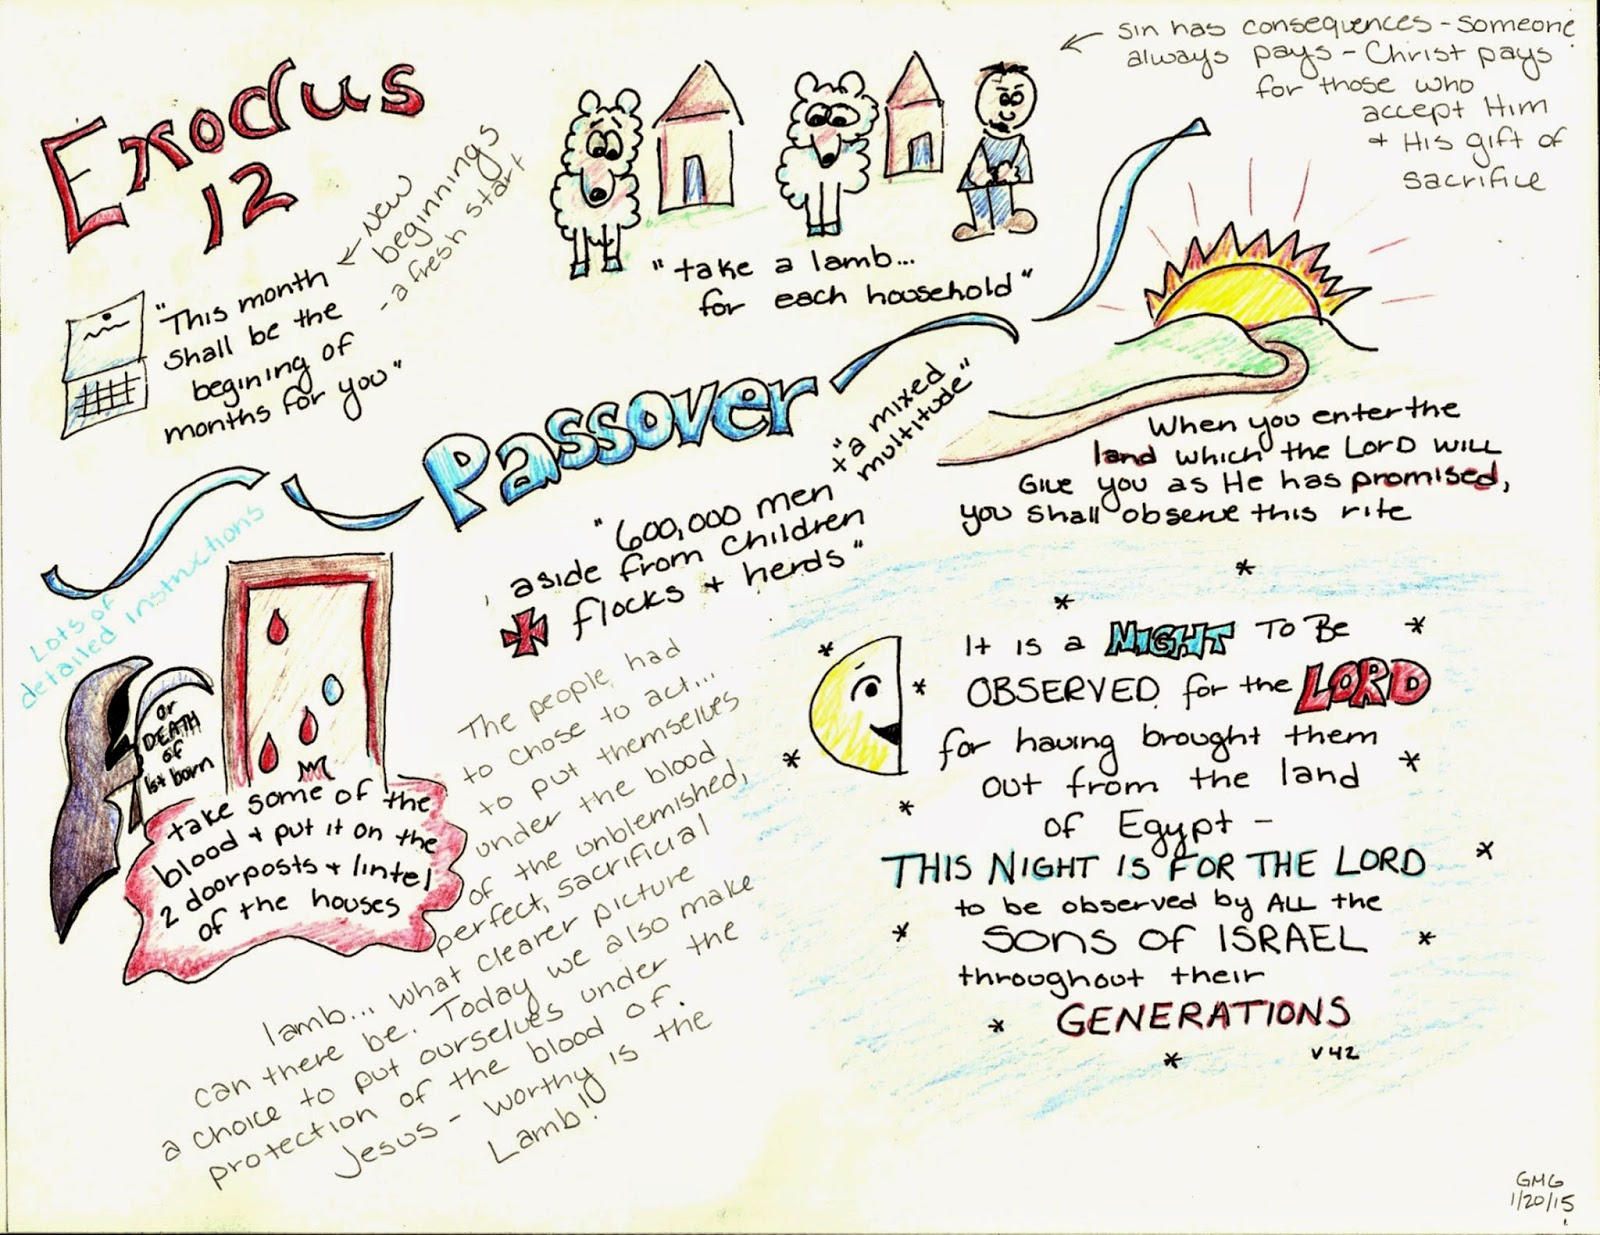 Exodus
12
"This month
shall be the
begining of
months for you"
← New
beginnings
- a fresh start
"take a lamb...
for each household"
← sin has consequences - someone
always pays - Christ pays
for those who
accept Him
+ His gift of
sacrifice
Passover
"600,000 men
aside from children
flocks + herds"
+ "a mixed
multitude"
When you enter the
land which the LORD will
Give you as He has promised,
you shall observe this rite
Lots of
detailed instructions
or
DEATH
of
1st born
take some of the
blood + put it on the
2 doorposts + lintel
of the houses
The people had
to chose to act...
to put themselves
under the blood
of the unblemished,
perfect, sacrificial
lamb... what clearer picture
can there be. Today we also make
a choice to put ourselves under the
protection of the blood of.
Jesus - worthy is the
Lamb!!
It is a NIGHT TO BE
OBSERVED for the LORD
for having brought them
out from the land
of Egypt -
THIS NIGHT IS FOR THE LORD
to be observed by ALL the
SONS OF ISRAEL
throughout their
GENERATIONS
v 42
GMG
1/20/15